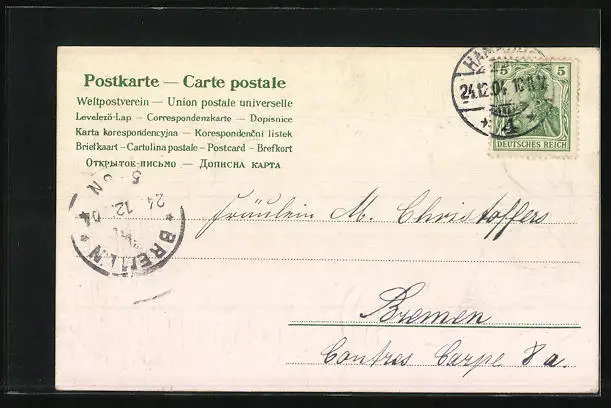 Postkarte — Carte postale
Weltpostverein — Union postale universelle
Levelező-Lap — Correspondenzkarte — Dopisnice
Karta korespondencyjna — Korespondenční listek
Briefkaart - Cartolina postale - Postcard - Brefkort
Открытое-письмо — Дописна карта
HAMBURG
24.12.04
* 4 *
5 5
DEUTSCHES REICH
24.12.04
* BREMEN *
Fräulein M. Christoffers
Bremen
Contres Carpe 8a.